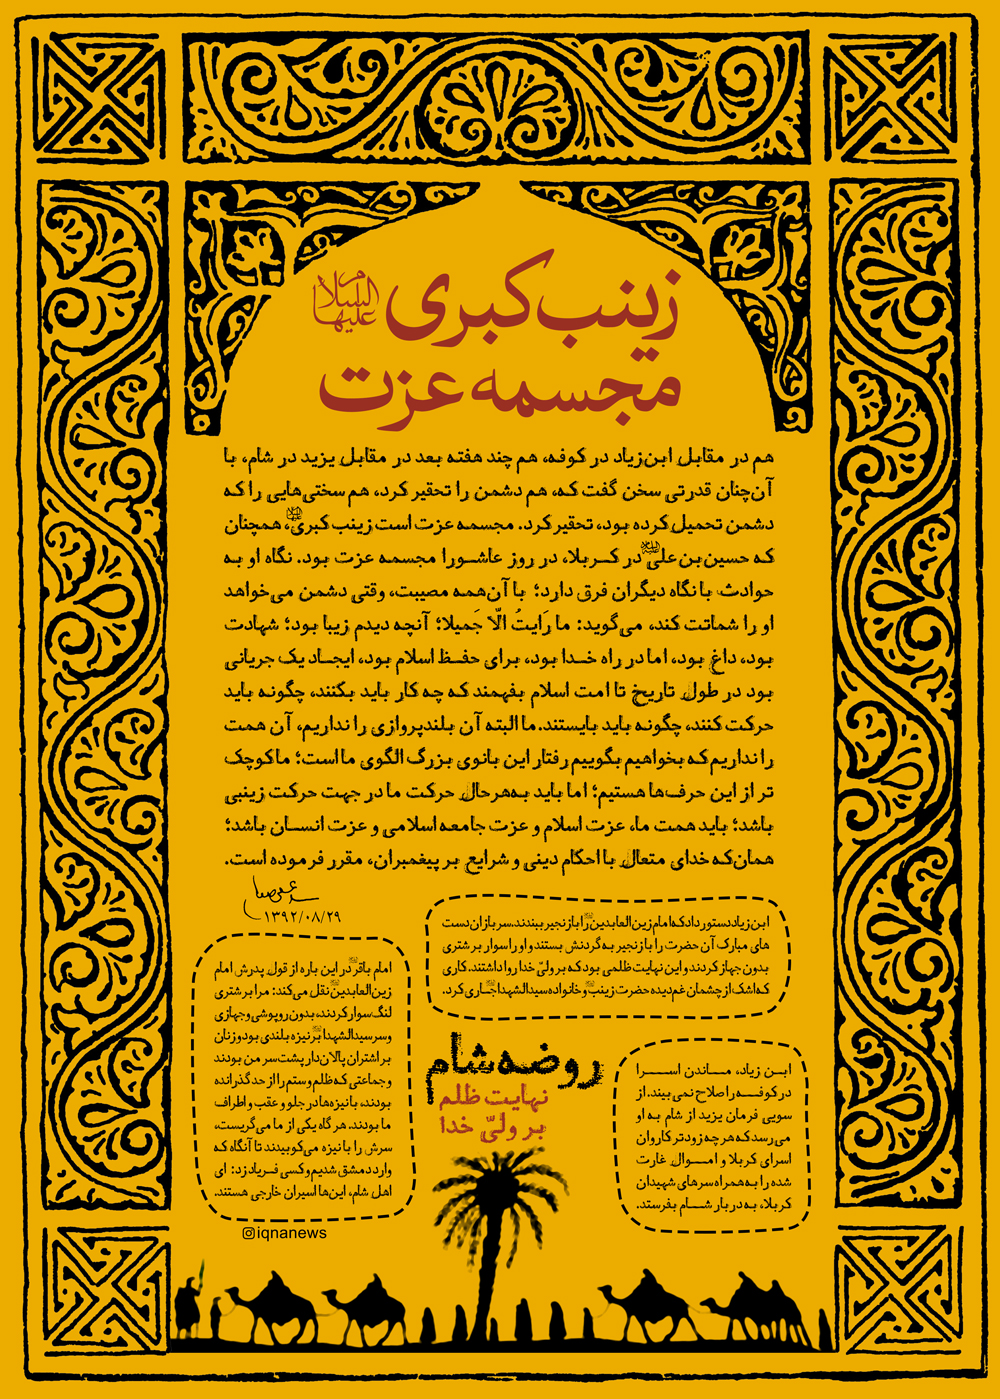 زینب کبری علیها السلام
مجسمه عزت
هم در مقابل ابن‌زیاد در کوفه، هم چند هفته بعد در مقابل یزید در شام، با
آن‌چنان قدرتی سخن گفت که، هم دشمن را تحقیر کرد، هم سختی‌هایی را که
دشمن تحمیل کرده بود، تحقیر کرد. مجسمه عزت است زینب کبری، همچنان
که حسین‌بن‌علی در کربلا، در روز عاشورا مجسمه عزت بود. نگاه او به
حوادث با نگاه دیگران فرق دارد؛ با آن‌همه مصیبت، وقتی دشمن می‌خواهد
او را شماتت کند، می‌گوید: ما رَایتُ الّا جَمیلا؛ آنچه دیدم زیبا بود؛ شهادت
بود، داغ بود، اما در راه خدا بود، برای حفظ اسلام بود، ایجاد یک جریانی
بود در طول تاریخ تا امت اسلام بفهمند که چه کار باید بکنند، چگونه باید
حرکت کنند، چگونه باید بایستند. ما البته آن بلندپروازی را نداریم، آن همت
را نداریم که بخواهیم بگوییم رفتار این بانوی بزرگ الگوی ما است؛ ما کوچک
تر از این حرف‌ها هستیم؛ اما باید به‌هرحال حرکت ما در جهت حرکت زینبی
باشد؛ باید همت ما، عزت اسلام و عزت جامعه اسلامی و عزت انسان باشد؛
همان‌که خدای متعال با احکام دینی و شرایع بر پیغمبران، مقرر فرموده است.
۱۳۹۲/۰۸/۲۹
ابن زیاد دستور داد که امام زین العابدین را با زنجیر ببندند. سربازان دست
های مبارک آن حضرت را با زنجیر به گردنش بستند و او را سوار بر شتری
بدون جهاز کردند و این نهایت ظلمی بود که بر ولیّ خدا روا داشتند. کاری
که اشک از چشمان غم‌دیده حضرت زینب و خانواده سیدالشهدا جاری کرد.
امام باقر در این باره از قول پدرش امام
زین العابدین نقل می‌کند: مرا بر شتری
لنگ سوار کردند، بدون روپوشی و جهازی
و سر سیدالشهدا بر نیزه بلندی بود و زنان
بر اشتران پالان‌دار پشت سر من بودند
و جماعتی که ظلم و ستم را از حد گذرانده
بودند، با نیزه‌ها در جلو و عقب و اطراف
ما بودند. هرگاه یکی از ما می‌گریست،
سرش را با نیزه می‌کوبیدند تا آنگاه که
وارد دمشق شدیم و کسی فریاد زد: ای
اهل شام، این‌ها اسیران خارجی هستند.
iqnanews
روضه شام
نهایت ظلم
بر ولیّ خدا
ابن زیاد، ماندن اسرا
در کوفه را اصلاح نمی‌بیند. از
سویی فرمان یزید از شام به او
می‌رسد که هر چه زودتر کاروان
اسرای کربلا و اموال غارت
شده را به همراه سرهای شهیدان
کربلا، به دربار شام بفرستد.